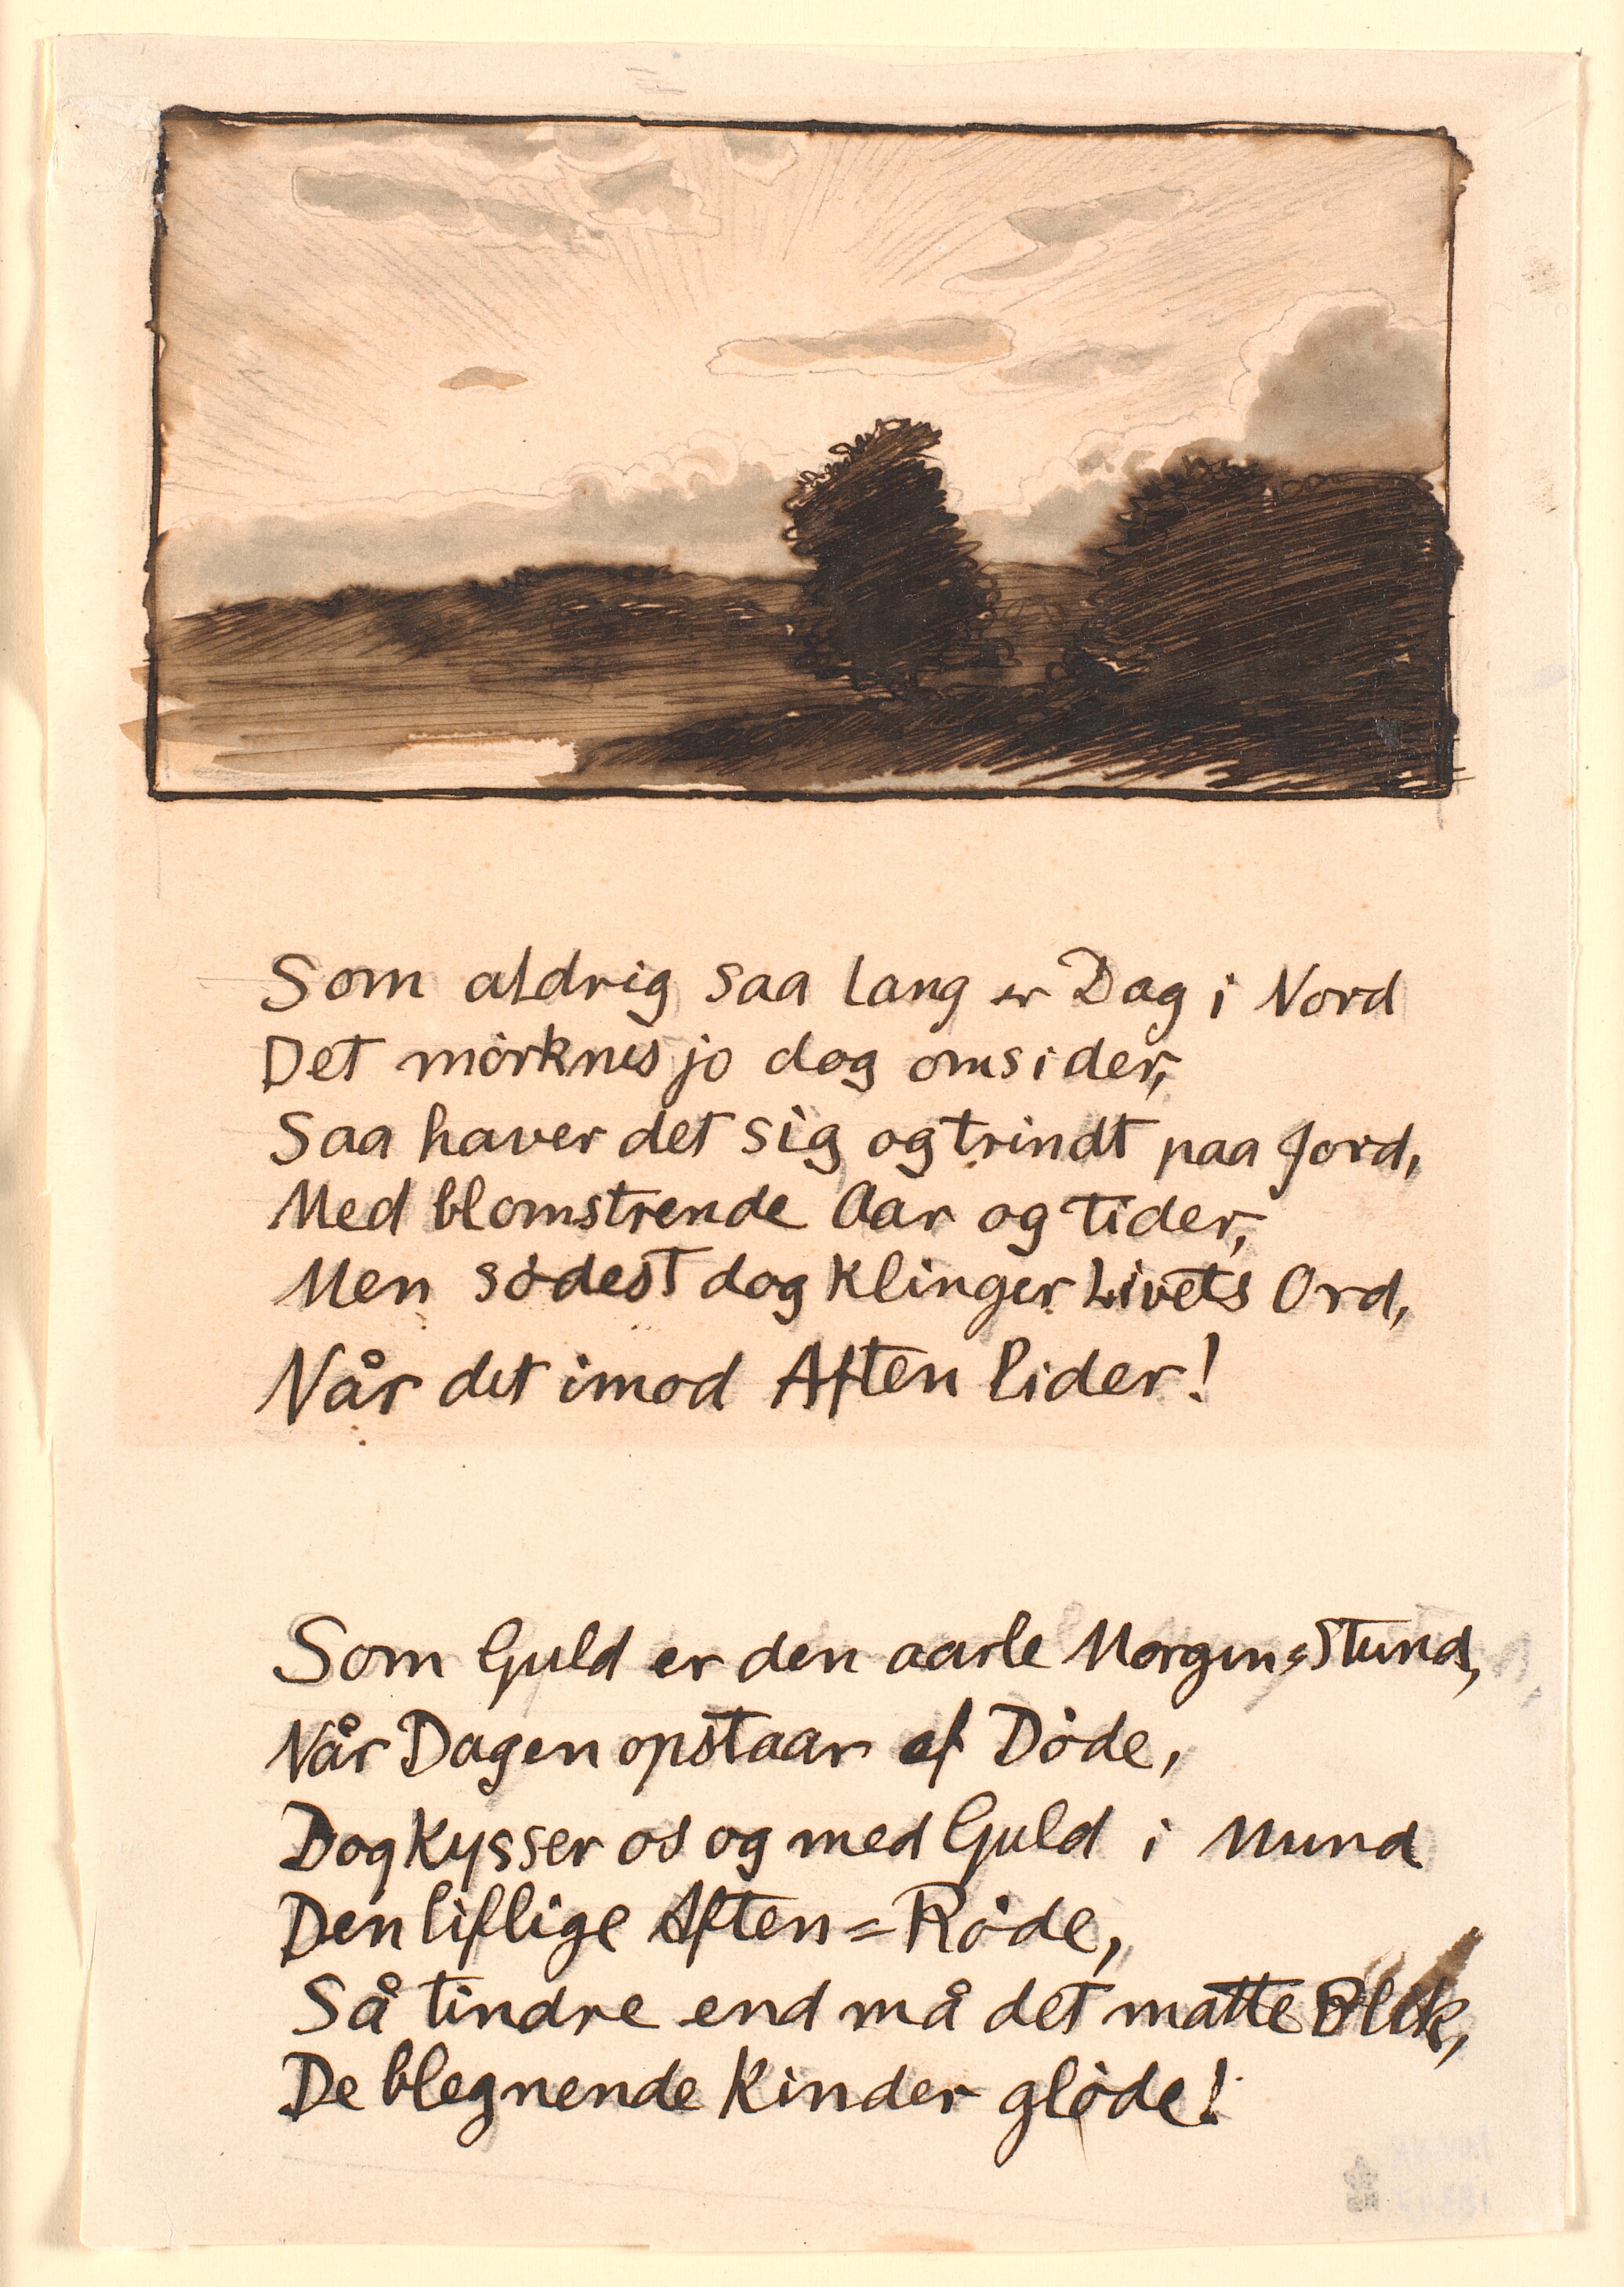 Som aldrig saa lang er Dag i Nord
Det mörknes jo dog omsider,
Saa haver det sig og trindt paa Jord,
Med blomstrende Aar og tider,
Men södest dog Klinger Livets Ord,
Når det imod Aften lider!
Som Guld er den aarle Morgen=Stund,
Når Dagen opstaar af Döde,
Dog Kysser os og med Guld i Mund
Den liflige Aften=Röde,
Så tindre end må det matte Blik,
De blegnende Kinder glöde!